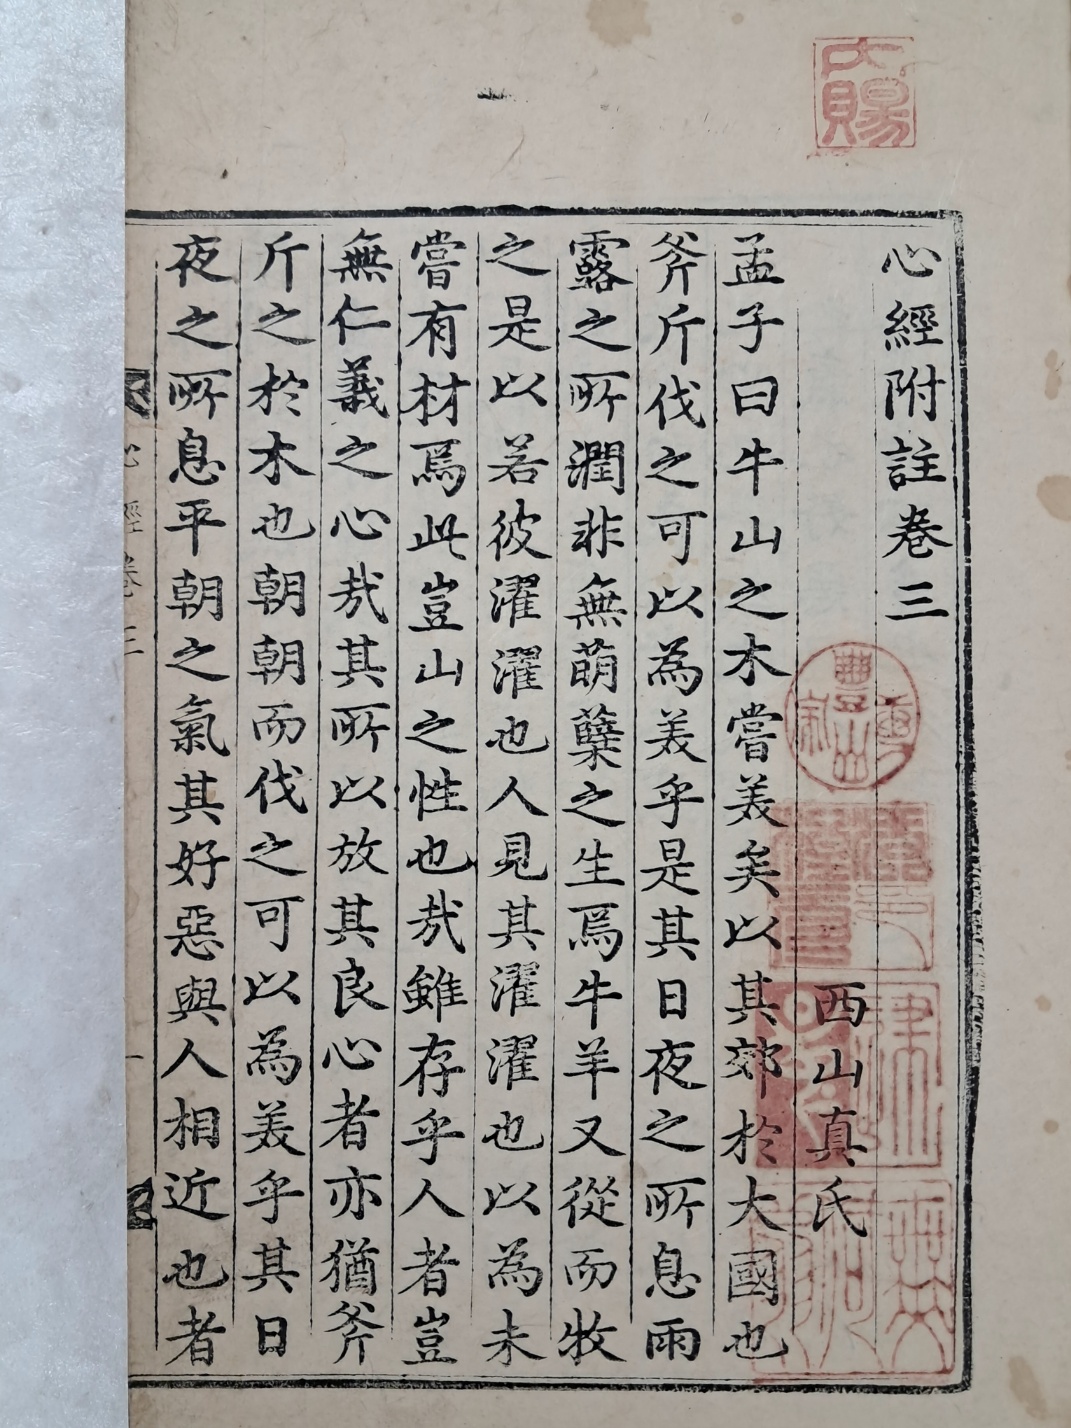 內賜
心經附註卷三
西山真氏
孟子曰牛山之木嘗美矣以其郊於大國也
斧斤伐之可以為美乎是其日夜之所息雨
露之所潤非無萌蘖之生焉牛羊又從而牧
之是以若彼濯濯也人見其濯濯也以為未
嘗有材焉此豈山之性也哉雖存乎人者豈
無仁義之心哉其所以放其良心者亦猶斧
斤之於木也朝朝而伐之可以為美乎其日
夜之所息平朝之氣其好惡與人相近也者
心經卷三
一